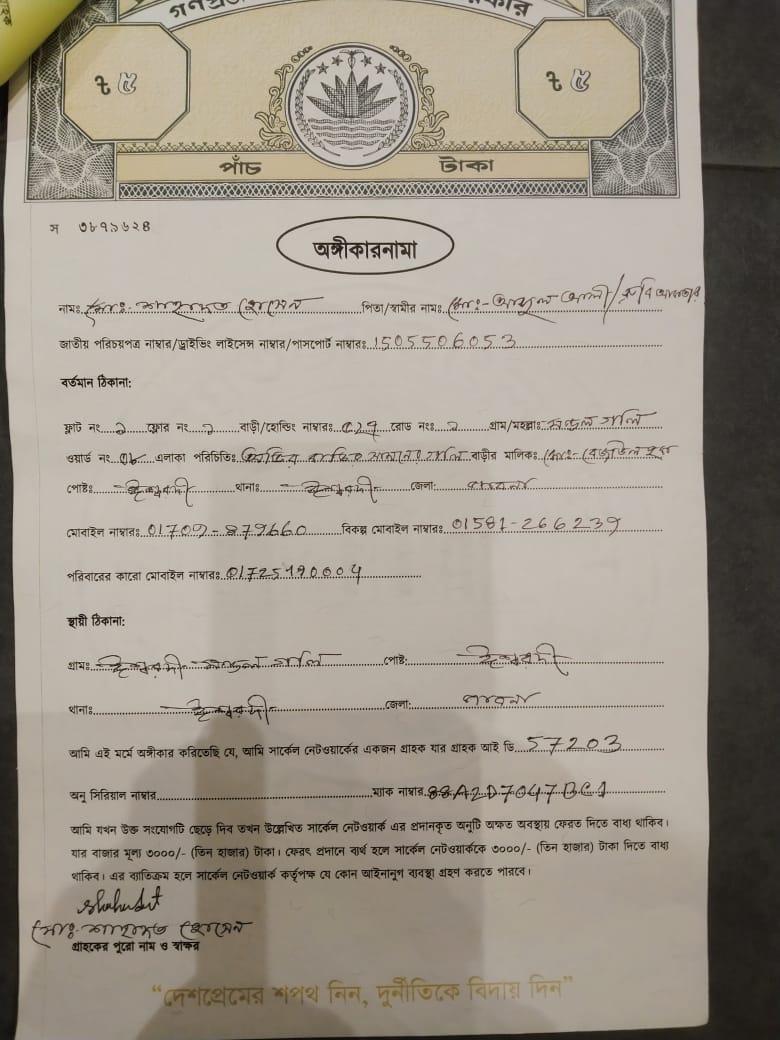 ৳ ৫
৳ ৫
পাঁচ টাকা
স ৩৮৭১৬২৪
অঙ্গীকারনামা
নামঃ মোঃ- শাহাদত হোসেন পিতা/স্বামীর নামঃ মোঃ- আবুল আলী/রুবি আকতার
জাতীয় পরিচয়পত্র নাম্বার/ড্রাইভিং লাইসেন্স নাম্বার/পাসপোর্ট নাম্বারঃ 1505506053
বর্তমান ঠিকানা:
ফ্লাট নং ১ ফ্লোর নং ১ বাড়ী/হোল্ডিং নাম্বারঃ রোড নংঃ ১ গ্রাম/মহল্লাঃ মন্ডল গলি
ওয়ার্ড নং ০৮ এলাকা পরিচিতিঃ গলি বাড়ীর মালিকঃ মোঃ-
পোষ্টঃ ঈশ্বরদী থানাঃ ঈশ্বরদী জেলা: পাবনা
মোবাইল নাম্বারঃ 01709-879660 বিকল্প মোবাইল নাম্বারঃ 01581-266239
পরিবারের কারো মোবাইল নাম্বারঃ 01725190004
স্থায়ী ঠিকানা:
গ্রামঃ ঈশ্বরদী মন্ডল গলি পোষ্ট: ঈশ্বরদী
থানাঃ ঈশ্বরদী জেলা: পাবনা
আমি এই মর্মে অঙ্গীকার করিতেছি যে, আমি সার্কেল নেটওয়ার্কের একজন গ্রাহক যার গ্রাহক আই ডি 57203
অনু সিরিয়াল নাম্বার ম্যাক নাম্বার 88A2D7047BC1
আমি যখন উক্ত সংযোগটি ছেড়ে দিব তখন উল্লেখিত সার্কেল নেটওয়ার্ক এর প্রদানকৃত অনুটি অক্ষত অবস্থায় ফেরত দিতে বাধ্য থাকিব।
যার বাজার মূল্য ৩০০০/- (তিন হাজার) টাকা। ফেরৎ প্রদানে ব্যর্থ হলে সার্কেল নেটওয়ার্ককে ৩০০০/- (তিন হাজার) টাকা দিতে বাধ্য
থাকিব। এর ব্যতিক্রম হলে সার্কেল নেটওয়ার্ক কর্তৃপক্ষ যে কোন আইনানুগ ব্যবস্থা গ্রহণ করতে পারবে।
মোঃ- শাহাদত হোসেন
গ্রাহকের পুরো নাম ও স্বাক্ষর
“দেশপ্রেমের শপথ নিন, দুর্নীতিকে বিদায় দিন”